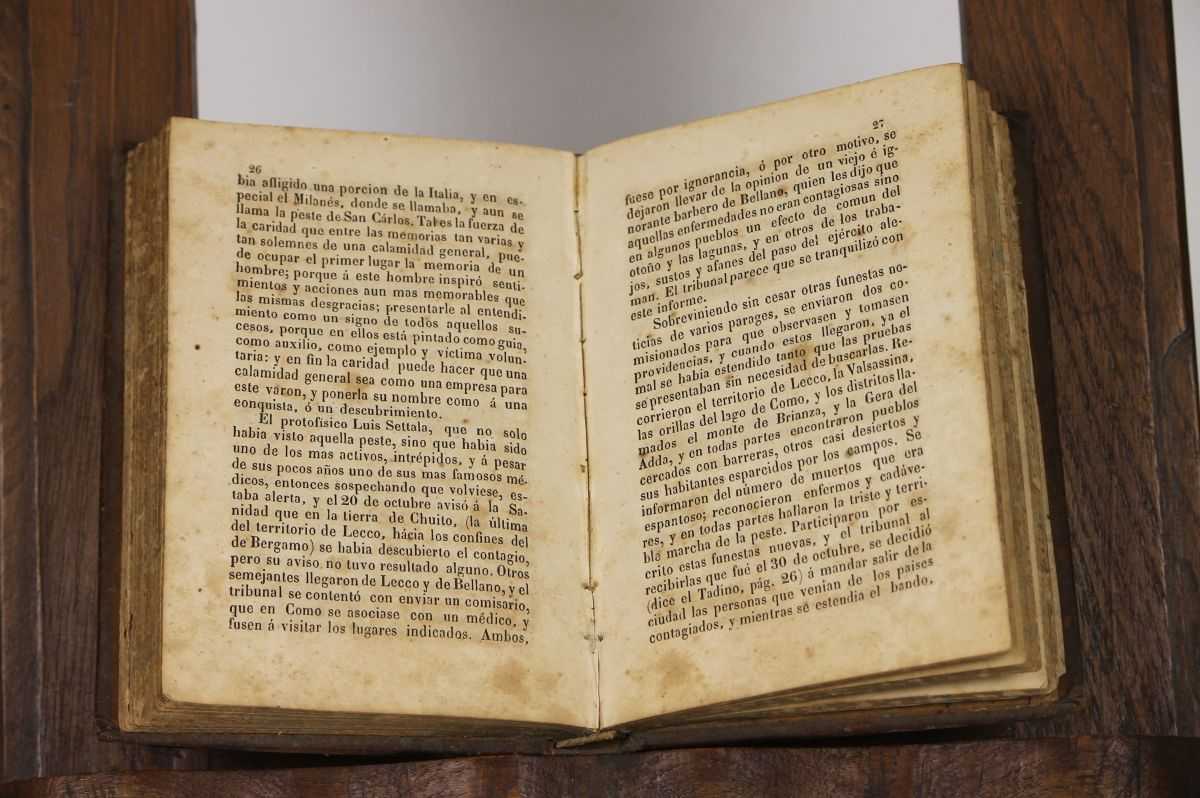 26
bia afligido una porcion de la Italia, y en es-
pecial el Milanés, donde se llamaba, y aun se
llama la peste de San Cárlos. Tal es la fuerza de
la caridad que entre las memorias tan varias y
tan solemnes de una calamidad general, pue-
de ocupar el primer lugar la memoria de un
hombre; porque á este hombre inspiró senti-
mientos y acciones aun mas memorables que
las mismas desgracias; presentarle al entendi-
miento como un signo de todos aquellos su-
cesos, porque en ellos está pintado como guia,
como auxilio, como ejemplo y víctima volun-
taria: y en fin la caridad puede hacer que una
calamidad general sea como una empresa para
este varon, y ponerla su nombre como á una
conquista, ó un descubrimiento.
El protofísico Luis Settala, que no solo
habia visto aquella peste, sino que habia sido
uno de los mas activos, intrépidos, y á pesar
de sus pocos años uno de sus mas famosos mé-
dicos, entonces sospechando que volviese, es-
taba alerta, y el 20 de octubre avisó á la Sa-
nidad que en la tierra de Chuito, (la última
del territorio de Lecco, hácia los confines del
de Bergamo) se habia descubierto el contagio,
pero su aviso no tuvo resultado alguno. Otros
semejantes llegaron de Lecco y de Bellano, y el
tribunal se contentó con enviar un comisario,
que en Como se asociase con un médico, y
fusen á visitar los lugares indicados. Ambos,
27
fuese por ignorancia, ó por otro motivo, se
dejaron llevar de la opinion de un viejo é ig-
norante barbero de Bellano, quien les dijo que
aquellas enfermedades no eran contagiosas sino
en algunos pueblos un efecto de comun del
otoño y las lagunas, y en otros de los traba-
jos, sustos y afanes del paso del ejército ale-
man. El tribunal parece que se tranquilizó con
este informe.
Sobreviniendo sin cesar otras funestas no-
ticias de varios parages, se enviaron dos co-
misionados para que observasen y tomasen
providencias, y cuando estos llegaron, ya el
mal se habia estendido tanto que las pruebas
se presentaban sin necesidad de buscarlas. Re-
corrieron el territorio de Lecco, la Valsassina,
las orillas del lago de Como, y los distritos lla-
mados el monte de Brianza, y la Gera del
Adda, y en todas partes encontraron pueblos
cercados con barreras, otros casi desiertos y
sus habitantes esparcidos por los campos. Se
informaron del número de muertos que era
espantoso; reconocieron enfermos y cadáve-
res, y en todas partes hallaron la triste y terri-
ble marcha de la peste. Participaron por es-
crito estas funestas nuevas, y el tribunal al
recibirlas que fué el 30 de octubre, se decidió
(dice el Tadino, pág. 26) á mandar salir de la
ciudad las personas que venian de los paises
contagiados, y mientras se estendia el bando,